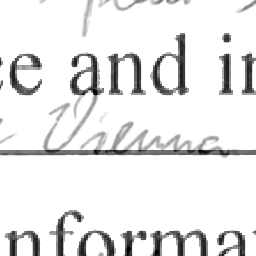 ce and in
Vienna
nformat